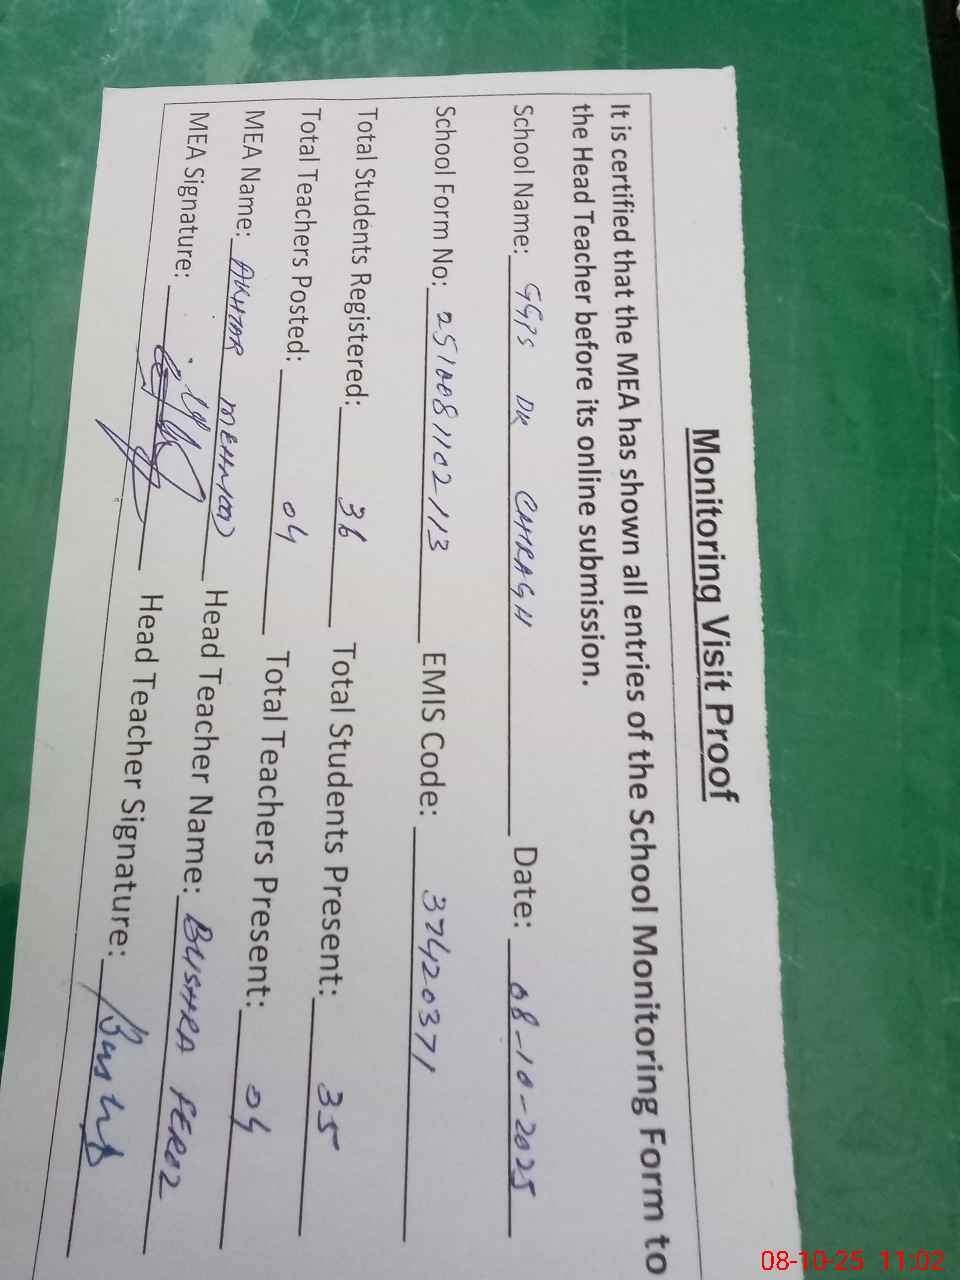 Monitoring Visit Proof
It is certified that the MEA has shown all entries of the School Monitoring Form to
the Head Teacher before its online submission.
School Name: GGPS DK CHIRAGH Date: 08-10-2025
School Form No: 251008 1102113 EMIS Code: 37420371
Total Students Registered: 36 Total Students Present: 35
Total Teachers Posted: 04 Total Teachers Present: 04
MEA Name: AKHTAR MEHMOOD Head Teacher Name: BUSHRA FEROZ
MEA Signature: Head Teacher Signature: Bushra
08-10-25 11:02